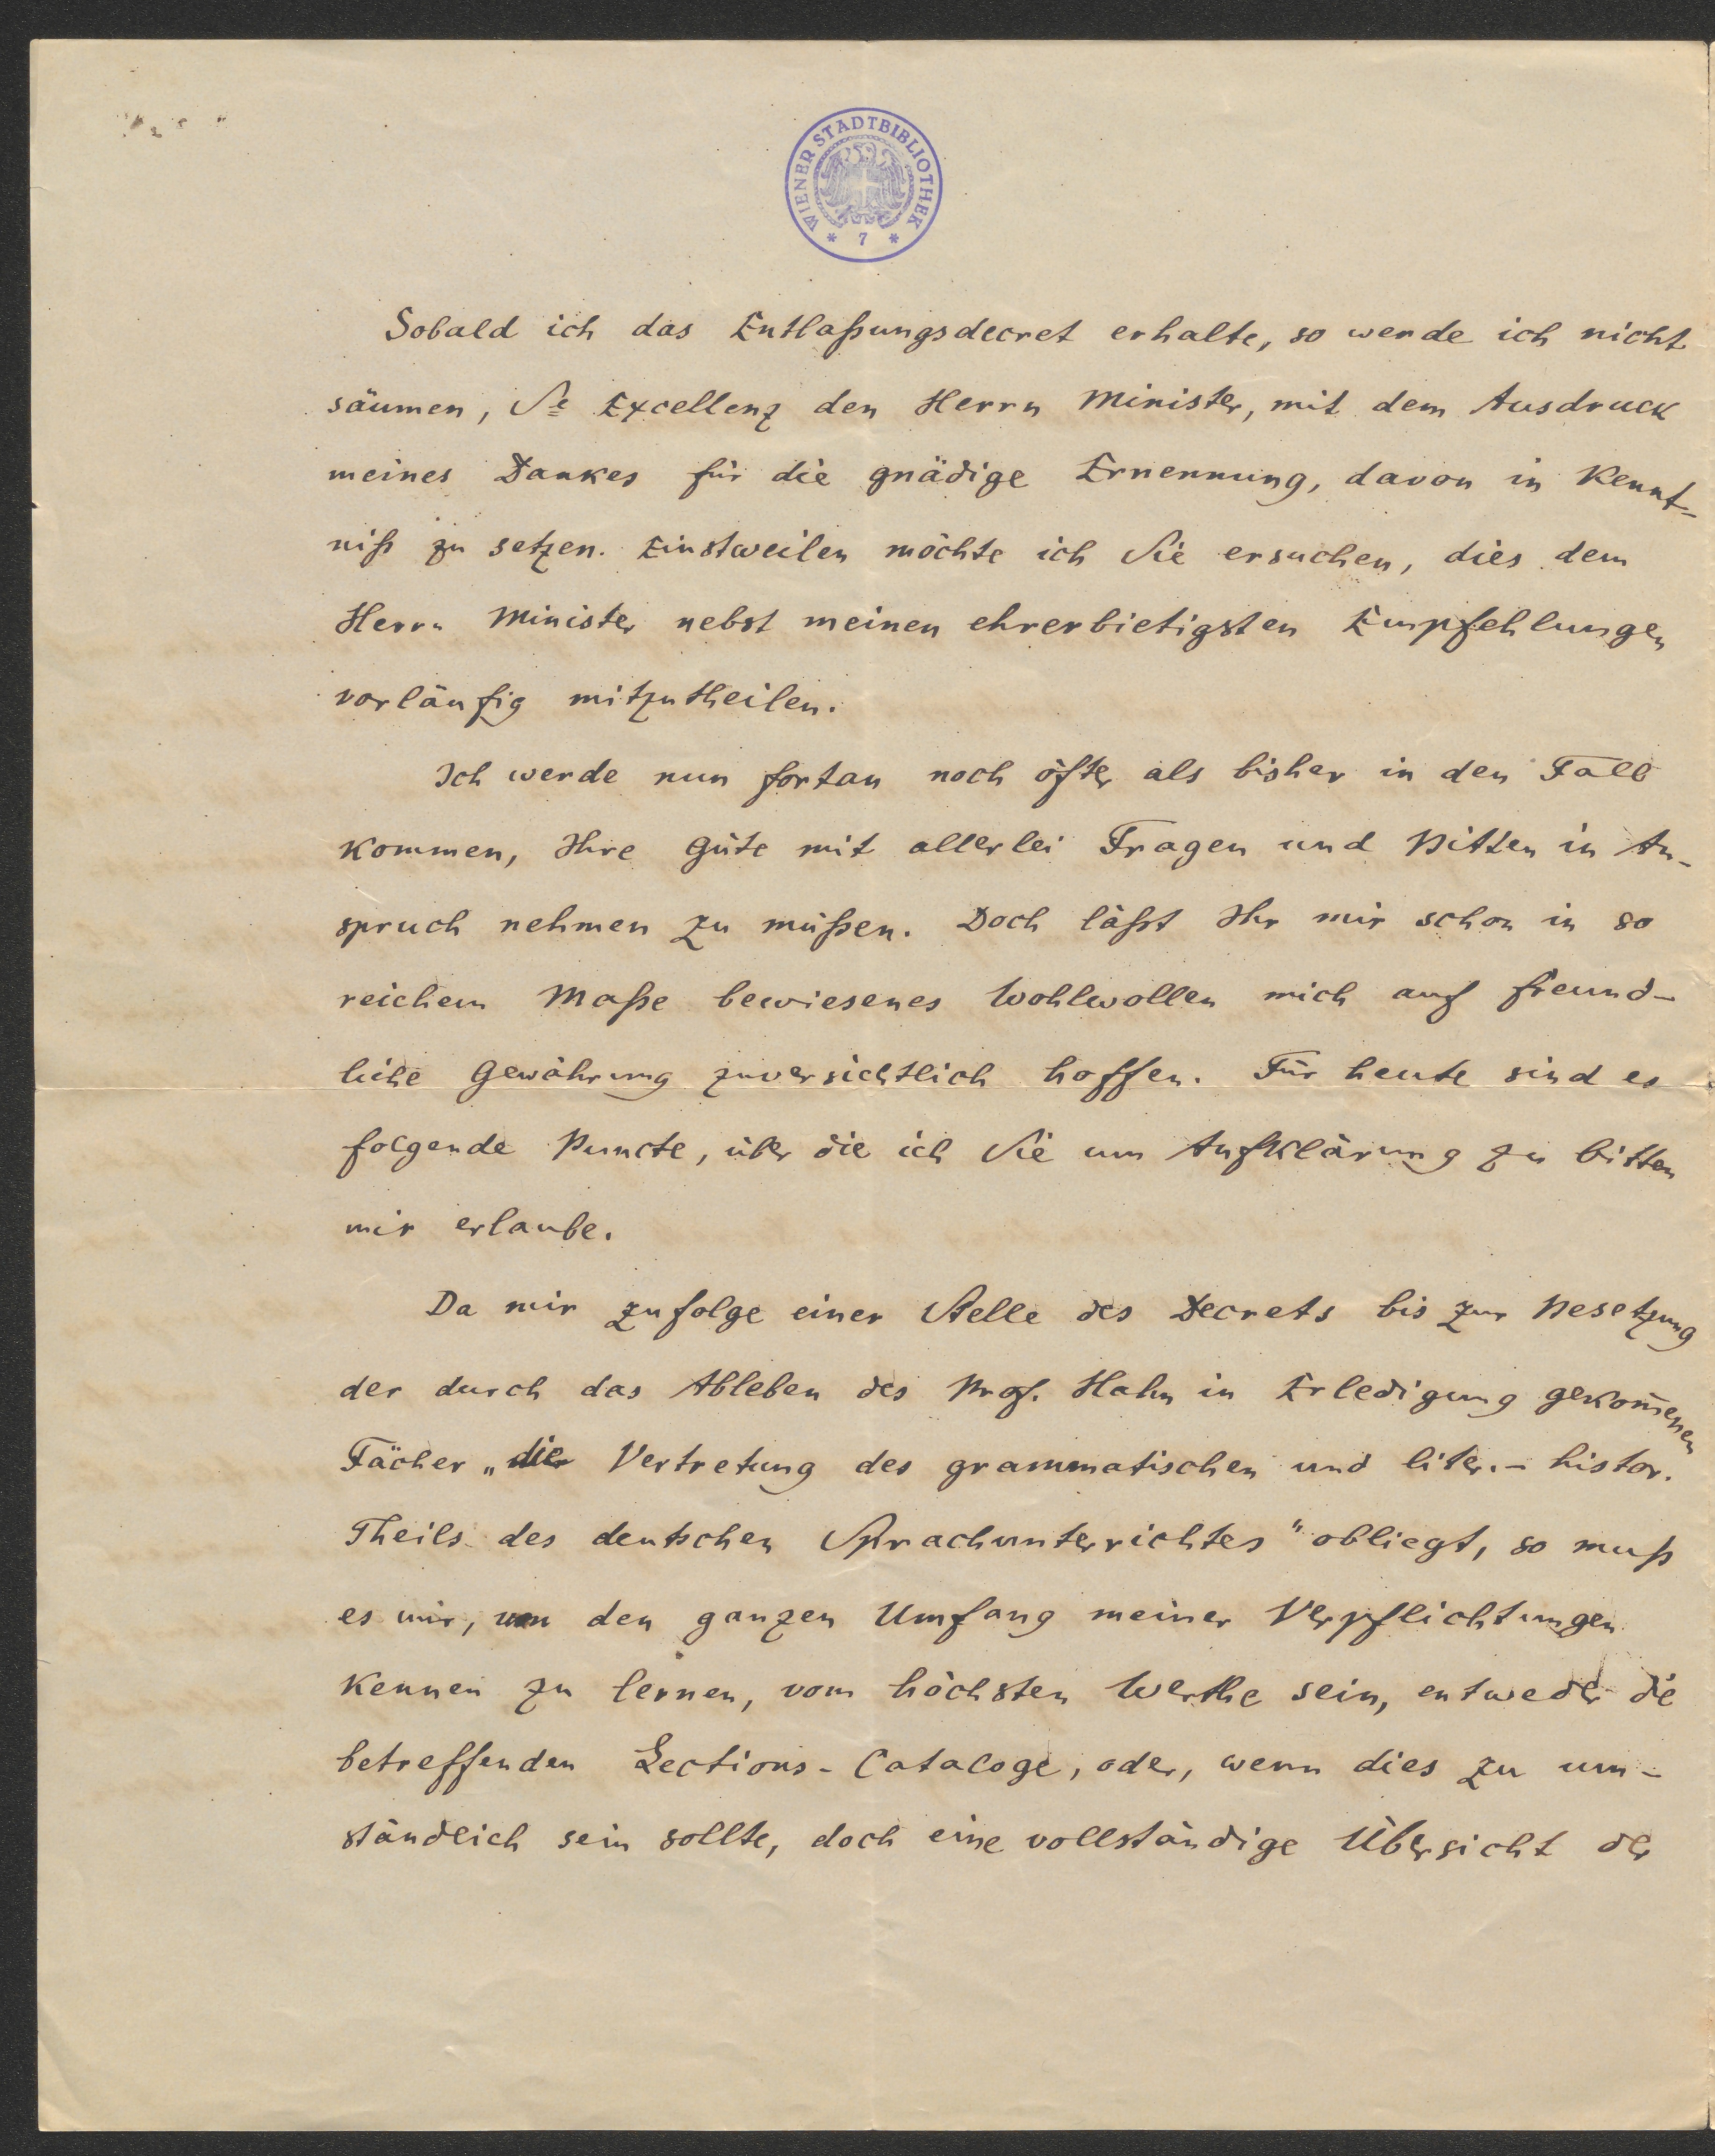 WIENER STADTBIBLIOTHEK
* 7 *
Sobald ich das Entlaßungsdecret erhalte, so werde ich nicht
säumen, Se Excellenz den Herrn Minister, mit dem Ausdruck
meines Dankes für die gnädige Ernennung, davon in Kennt-
niß zu setzen. Einstweilen möchte ich Sie ersuchen, dies dem
Herrn Minister nebst meinen ehrerbietigsten Empfehlungen
vorläufig mitzutheilen.
Ich werde nun fortan noch öfter als bisher in den Fall
kommen, Ihre Güte mit allerlei Fragen und Bitten in An-
spruch nehmen zu müßen. Doch läßt Ihr mir schon in so
reichem Maße bewiesenes Wohlwollen mich auf freund-
liche Gewährung zuversichtlich hoffen. Für heute sind es
folgende Puncte, über die ich Sie um Aufklärung zu bitten
mir erlaube.
Da mir zufolge einer Stelle des Decrets bis zur Besetzung
der durch das Ableben des Prof. Hahn in Erledigung gekom̄enen
Fächer „die Vertretung des grammatischen und liter.-histor.
Theils des deutschen Sprachunterrichtes" obliegt, so muß
es mir, um den ganzen Umfang meiner Verpflichtungen
kennen zu lernen, vom höchsten Werthe sein, entweder die
betreffenden Lections-Cataloge, oder, wenn dies zu um-
ständlich sein sollte, doch eine vollständige Übersicht der